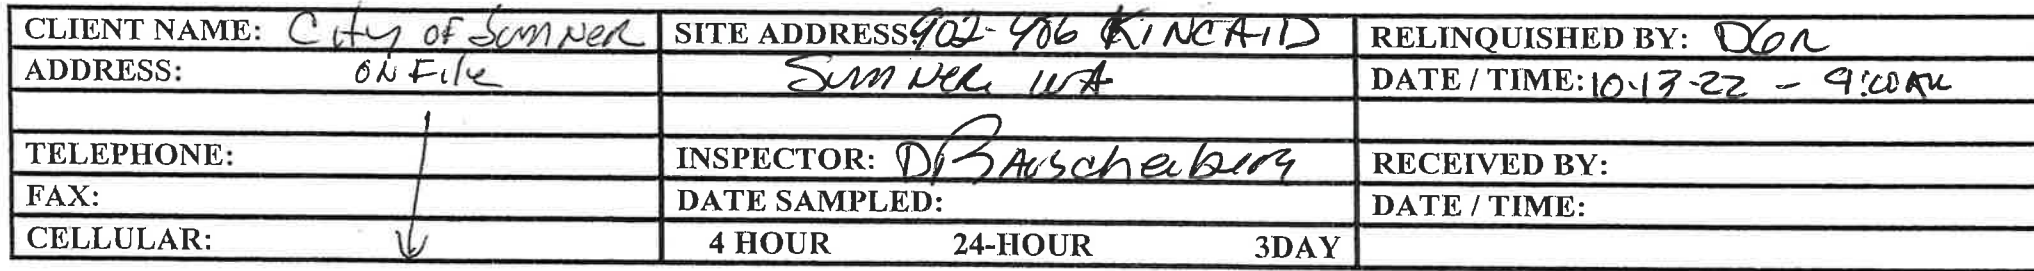 CLIENT NAME: City of Sumner SITE ADDRESS: 902-906 KINCAID RELINQUISHED BY:
ADDRESS: ON File Sumner WA DATE / TIME: 10-13-22 - 9:00 AM
TELEPHONE: INSPECTOR: RECEIVED BY:
FAX: DATE SAMPLED: DATE / TIME:
CELLULAR: 4 HOUR 24-HOUR 3DAY